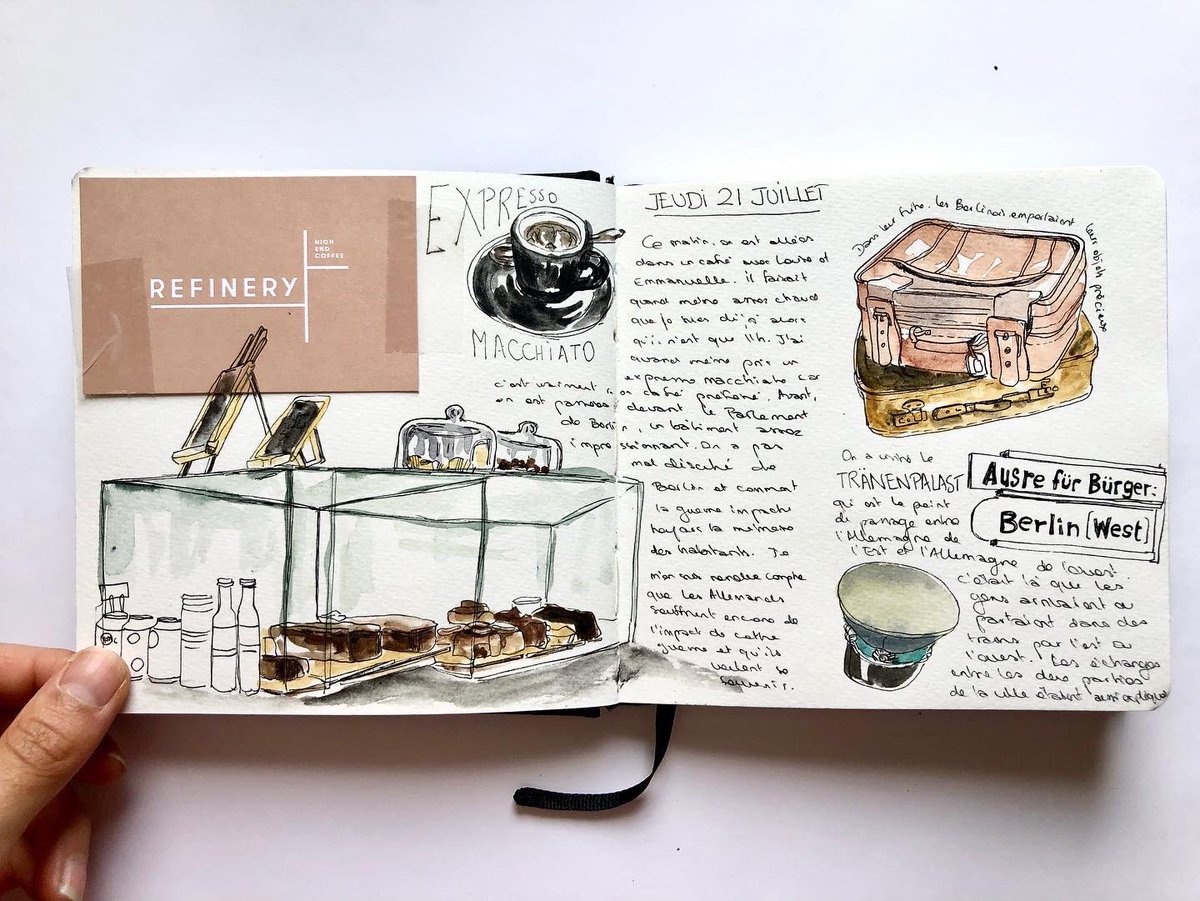 REFINERY
HIGH
END
COFFEE
EXPRESSO
MACCHIATO
JEUDI 21 JUILLET
Ce matin, on est allées
dans un café avec Louise et
Emmanuelle. il faisait
quand même assez chaud
que je suis déjà alors
qu'il n'est que 11h. J'ai
quand même pris un
expresso macchiato car
c'est vraiment mon café préféré. Avant,
on est passées devant le Parlement
de Berlin, un bâtiment assez
impressionnant. On a pas
mal discuté de
Berlin et comment
la guerre impacte
toujours la mémoire
des habitants. Je
m'en suis rendue compte
que les Allemands
souffrent encore de
l'impact de cette
guerre et qu'ils
veulent se
souvenir.
Dans leur fuite, les Berlinois emportaient leurs objets précieux
On a visité le
TRÄNENPALAST
qui est le point
de passage entre
l'Allemagne de
l'Est et l'Allemagne de l'ouest.
c'était là que les
gens arrivaient ou
partaient dans des
trains par l'est ou
l'ouest. Les échanges
entre les deux parties
de la ville étaient aussi
Ausre für Bürger:
Berlin (West)